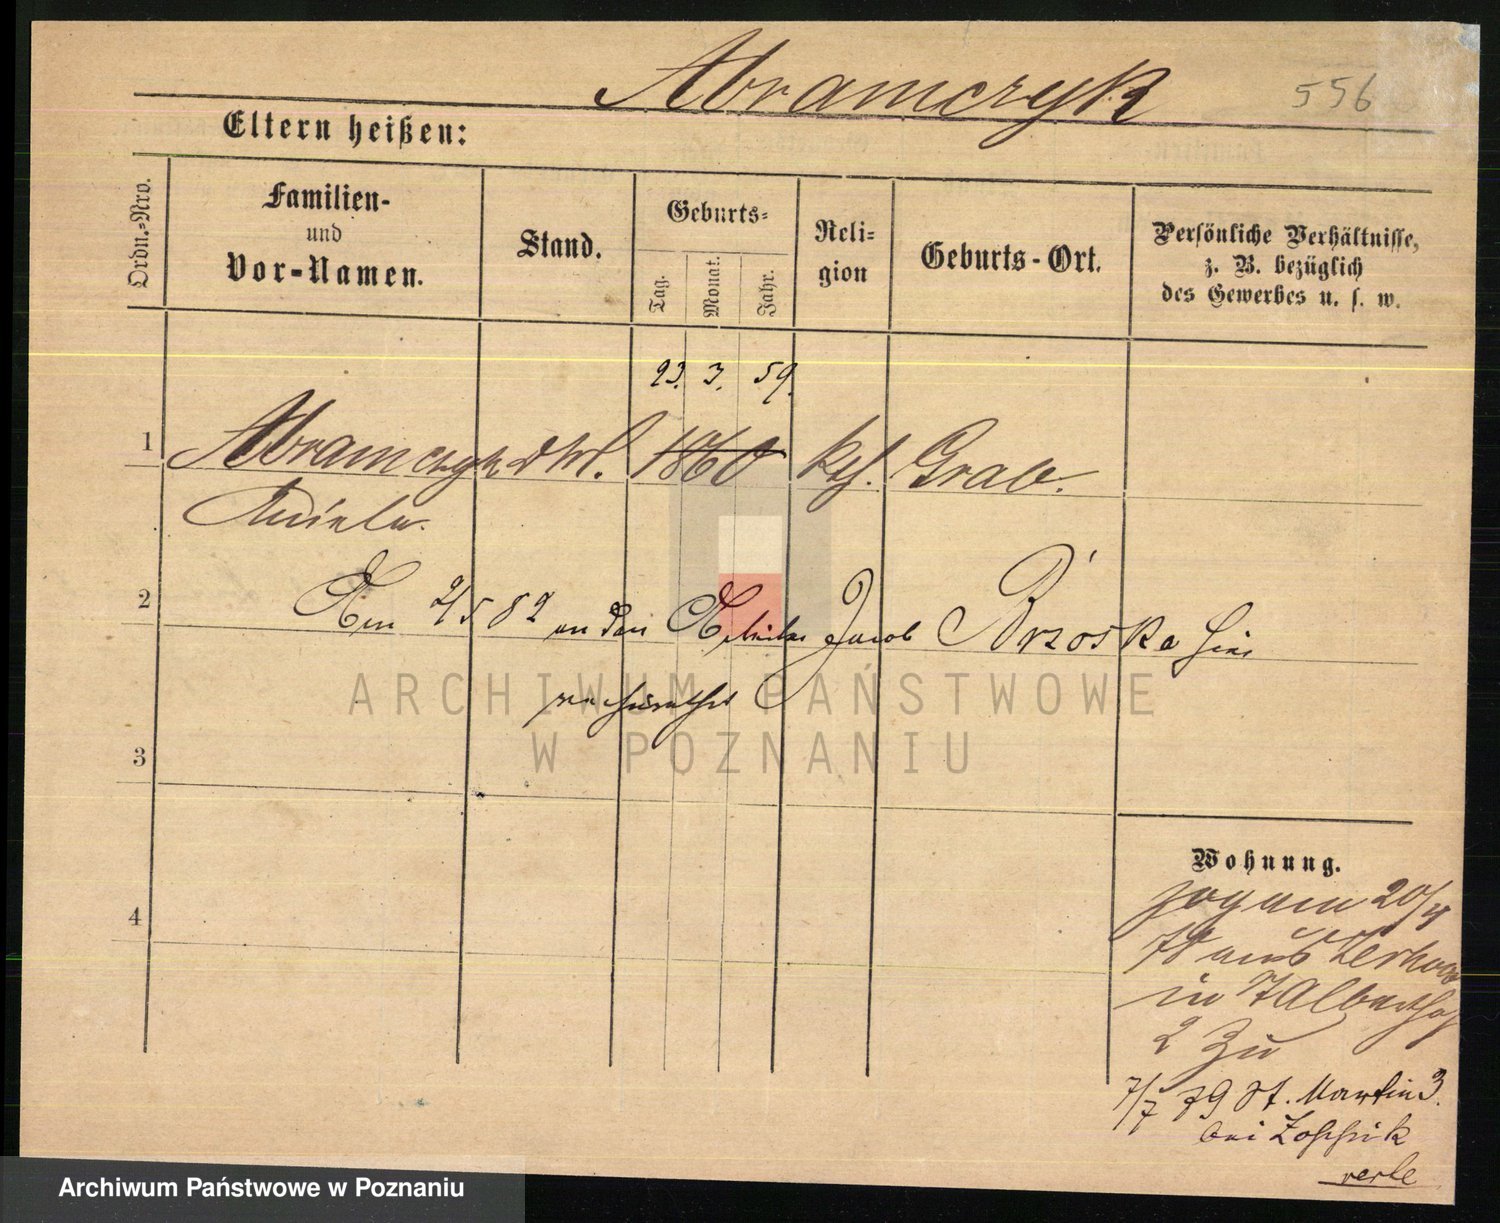 Abramczyk
556
Eltern heißen:
Ordn.=Nro.
Familien-
und
Vor=Namen.
Stand.
Geburts=
Tag.
Monat.
Jahr.
Reli=
gion
Geburts-Ort.
Persönliche Verhältnisse,
z. B. bezüglich
des Gewerbes u. s. w.
23. 3. 59.
1 Abramczyk 1860 kth. Grab.
Aniela.
2 Am 2/5 82 an den Arbeiter Jacob Brzoska hier
verheirathet
3
ARCHIWUM PAŃSTWOWE
W POZNANIU
4
Wohnung.
zog am 20/4
78 aus
in
2 Zu
7/7 79 St. Martin 3.
bei
Archiwum Państwowe w Poznaniu